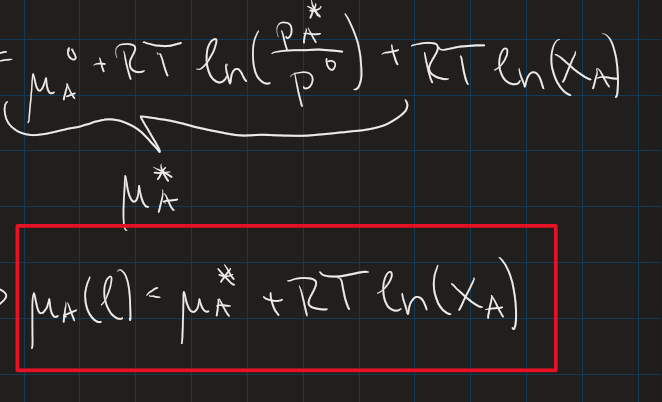 = μ_A° + RT ln(P_A*/P°) + RT ln(x_A)
μ_A*
μ_A(l) = μ_A* + RT ln(x_A)